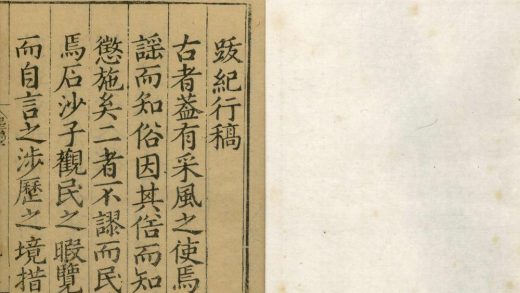 跋紀行稿
古者蓋有采風之使焉
謡而知俗因其俗而知
懲施矣二者不謬而民
焉石沙子觀民之暇覽
而自言之涉歷之境措